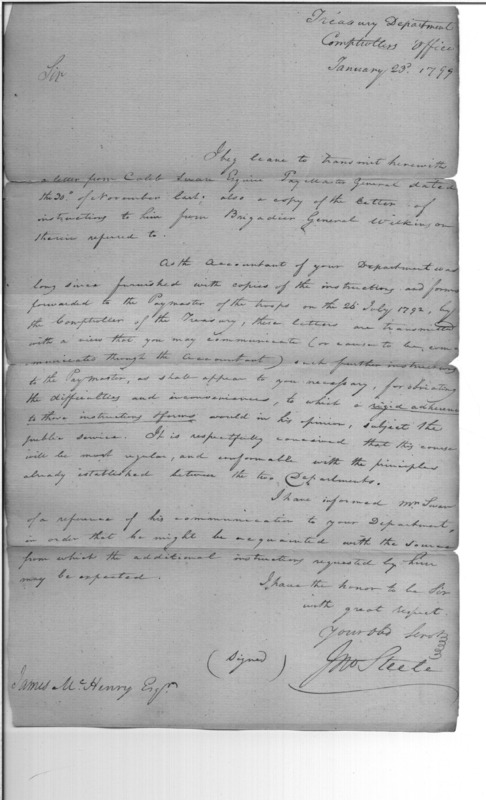 Treasury Department
Comptrollers Office
January 23d. 1799
Sir
I beg leave to transmit herewith
a letter from Caleb Swan Esquire Pay Master General dated
the 30th of November last; also a copy of the letter of
instructions to him from Brigadier General Wilkinson
therein refered to.
As the Accountant of your Department was
long since furnished with copies of the instructions and forms
forwarded to the Paymaster of the troops on the 26 July 1792, by
the Comptroller of the Treasury; these letters are transmitted
with a view that you may communicate (or cause to be com-
municated through the Accountant) such further instructions
to the Pay Master, as shall appear to you necessary, for obviating
the difficulties and inconveniences, to which a rigid adherence
to those instructions & forms would in his opinion, subject the
public service. It is respectfully conceived that this course
will be most regular, and conformable with the principles
already established between the two Departments.
I have informed Mr Swan
of a reference of his communication to your Department,
in order that he might be acquainted with the source
from which the additional instructions requested by him
may be expected.
I have the honor to be Sir
with great respect
Your Obd Servt
(Signed) Jno Steele
James McHenry Esqr